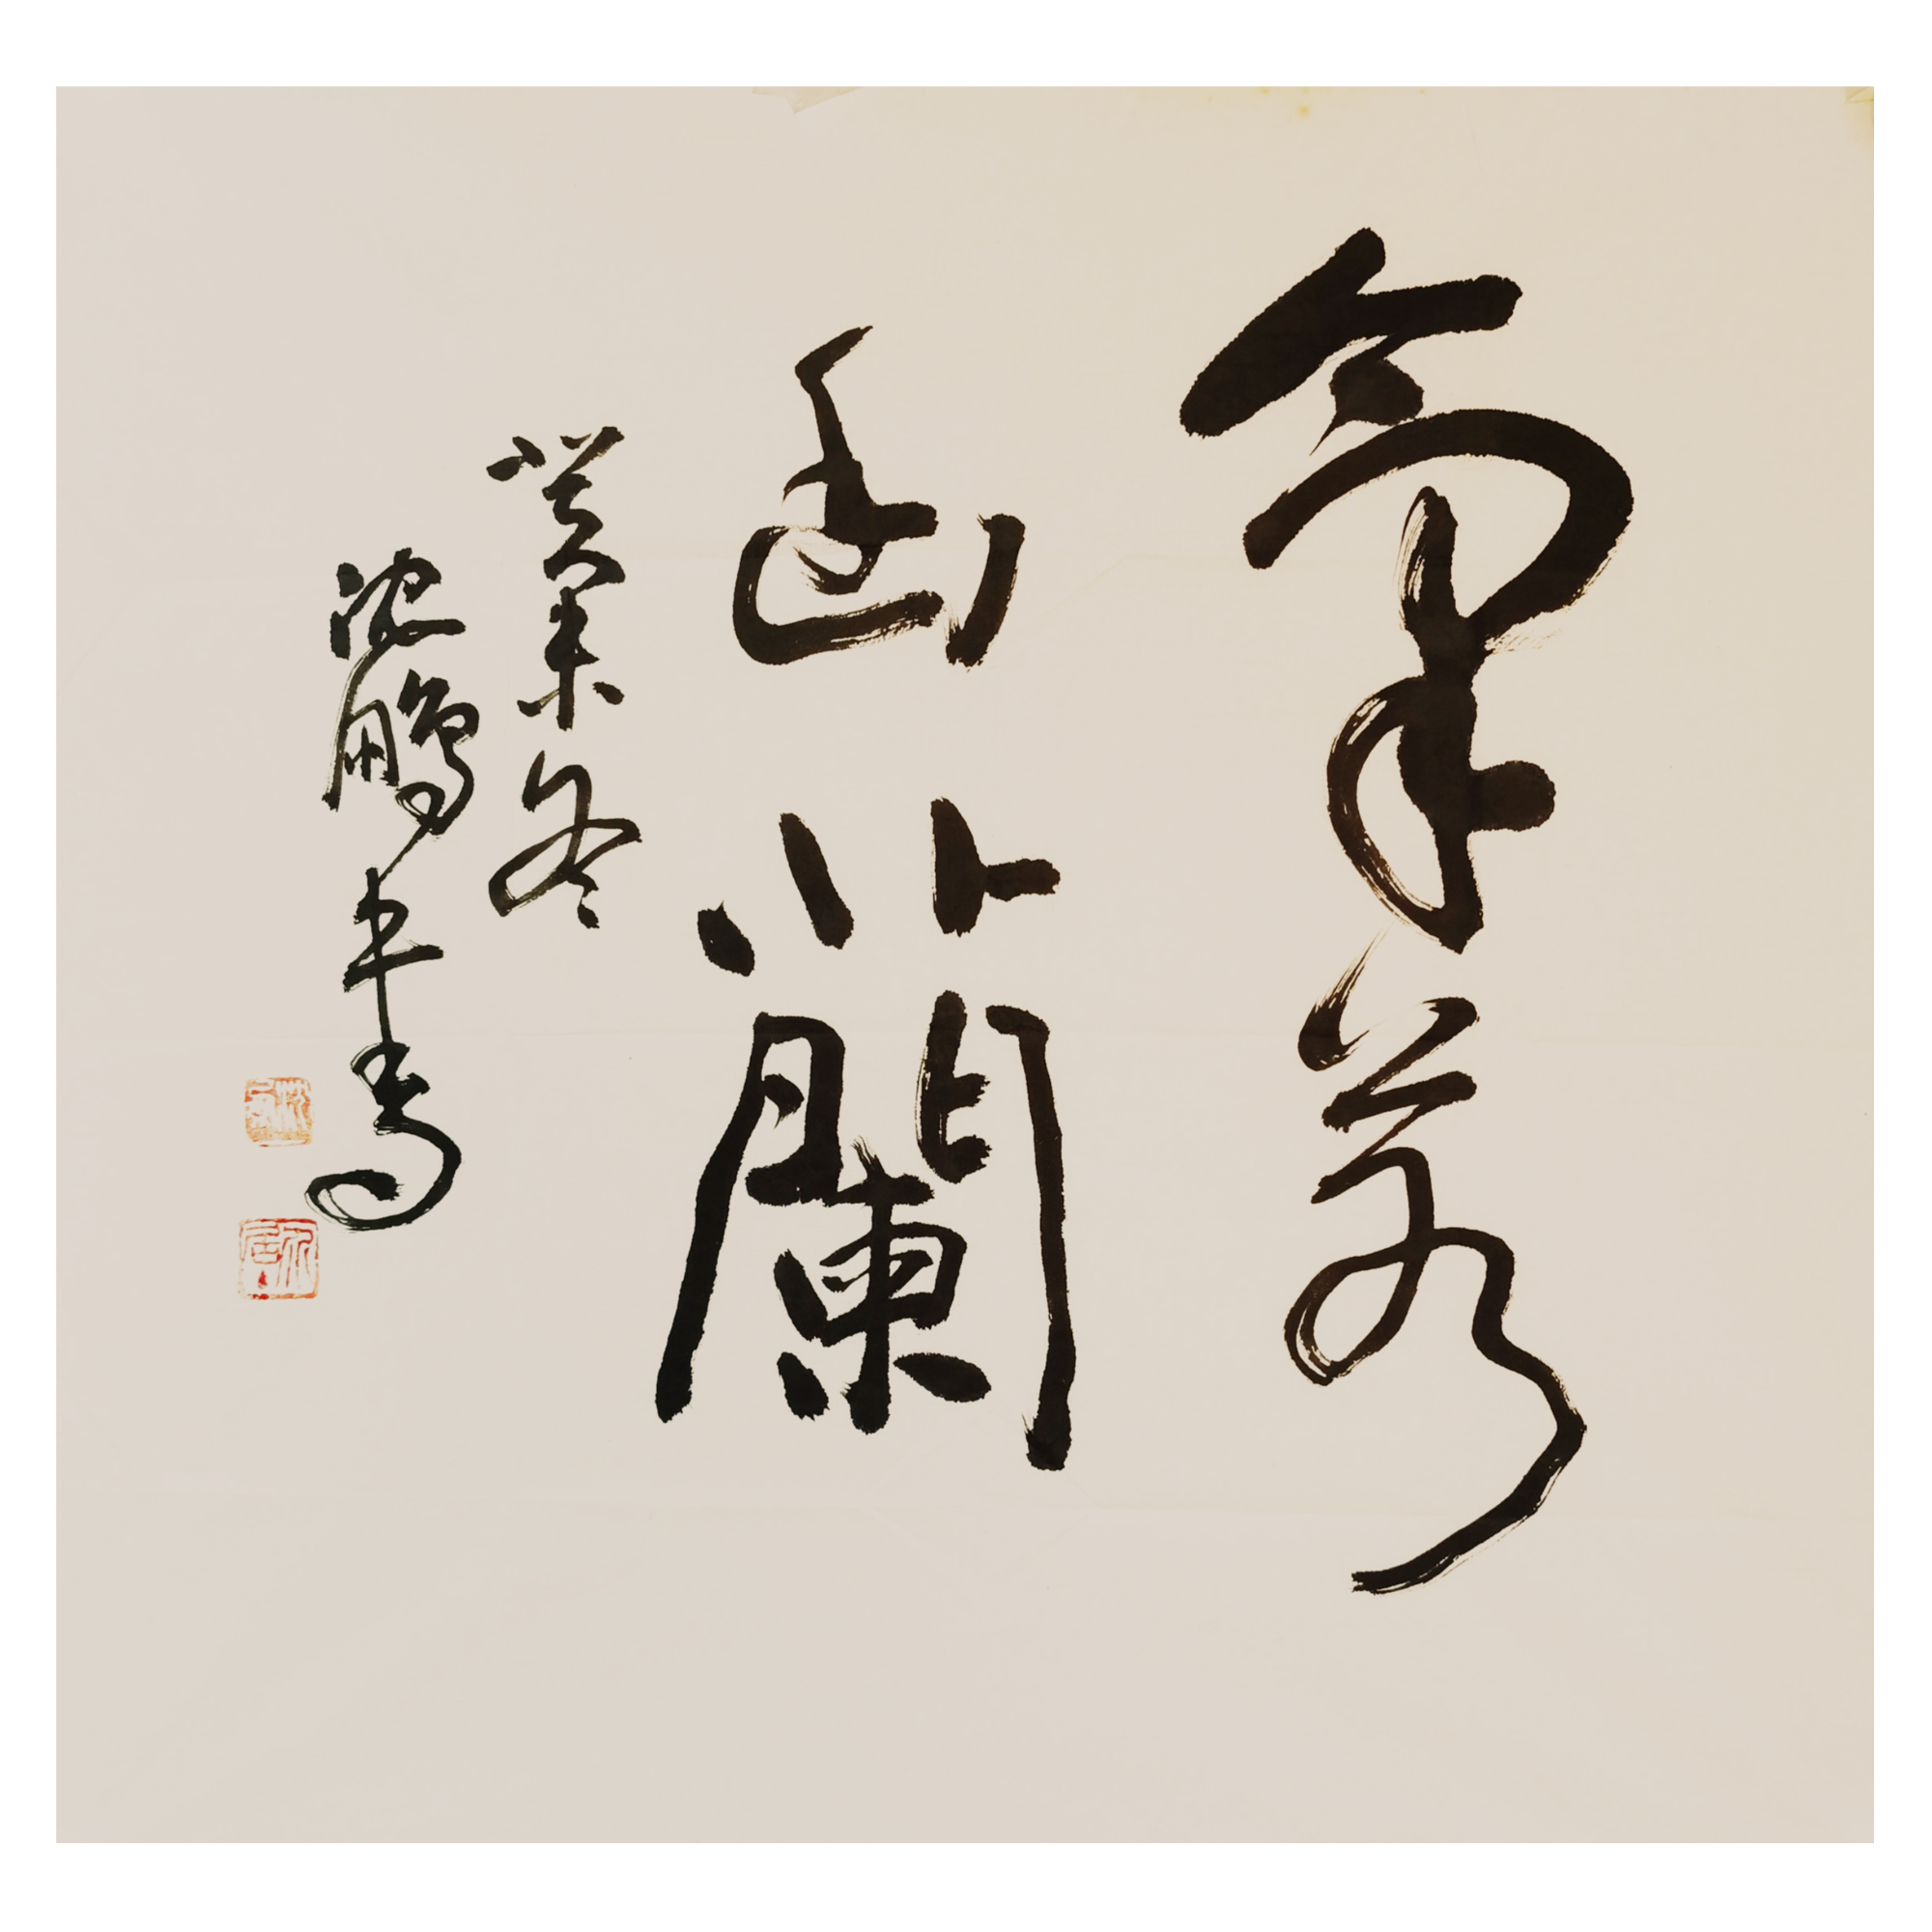 氣若
幽蘭
癸未冬
沈鵬書